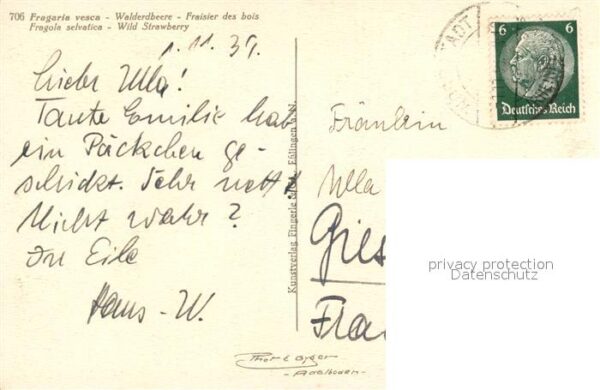 706 Fragaria vesca - Walderdbeere - Fraisier des bois
Fragola selvatica - Wild Strawberry
1.11.39.
Liebe Ulla!
Tante Emilie hat
ein Päckchen ge-
schickt. Sehr nett
Nicht wahr?
In Eile
Hans-W.
Kunstverlag Fingerle Esslingen a. N.
STADT
6 6
Deutsches Reich
Fräulein
Ulla
Gies
Fra
privacy protection
Datenschutz
Phot E Gyger
- Adelboden -